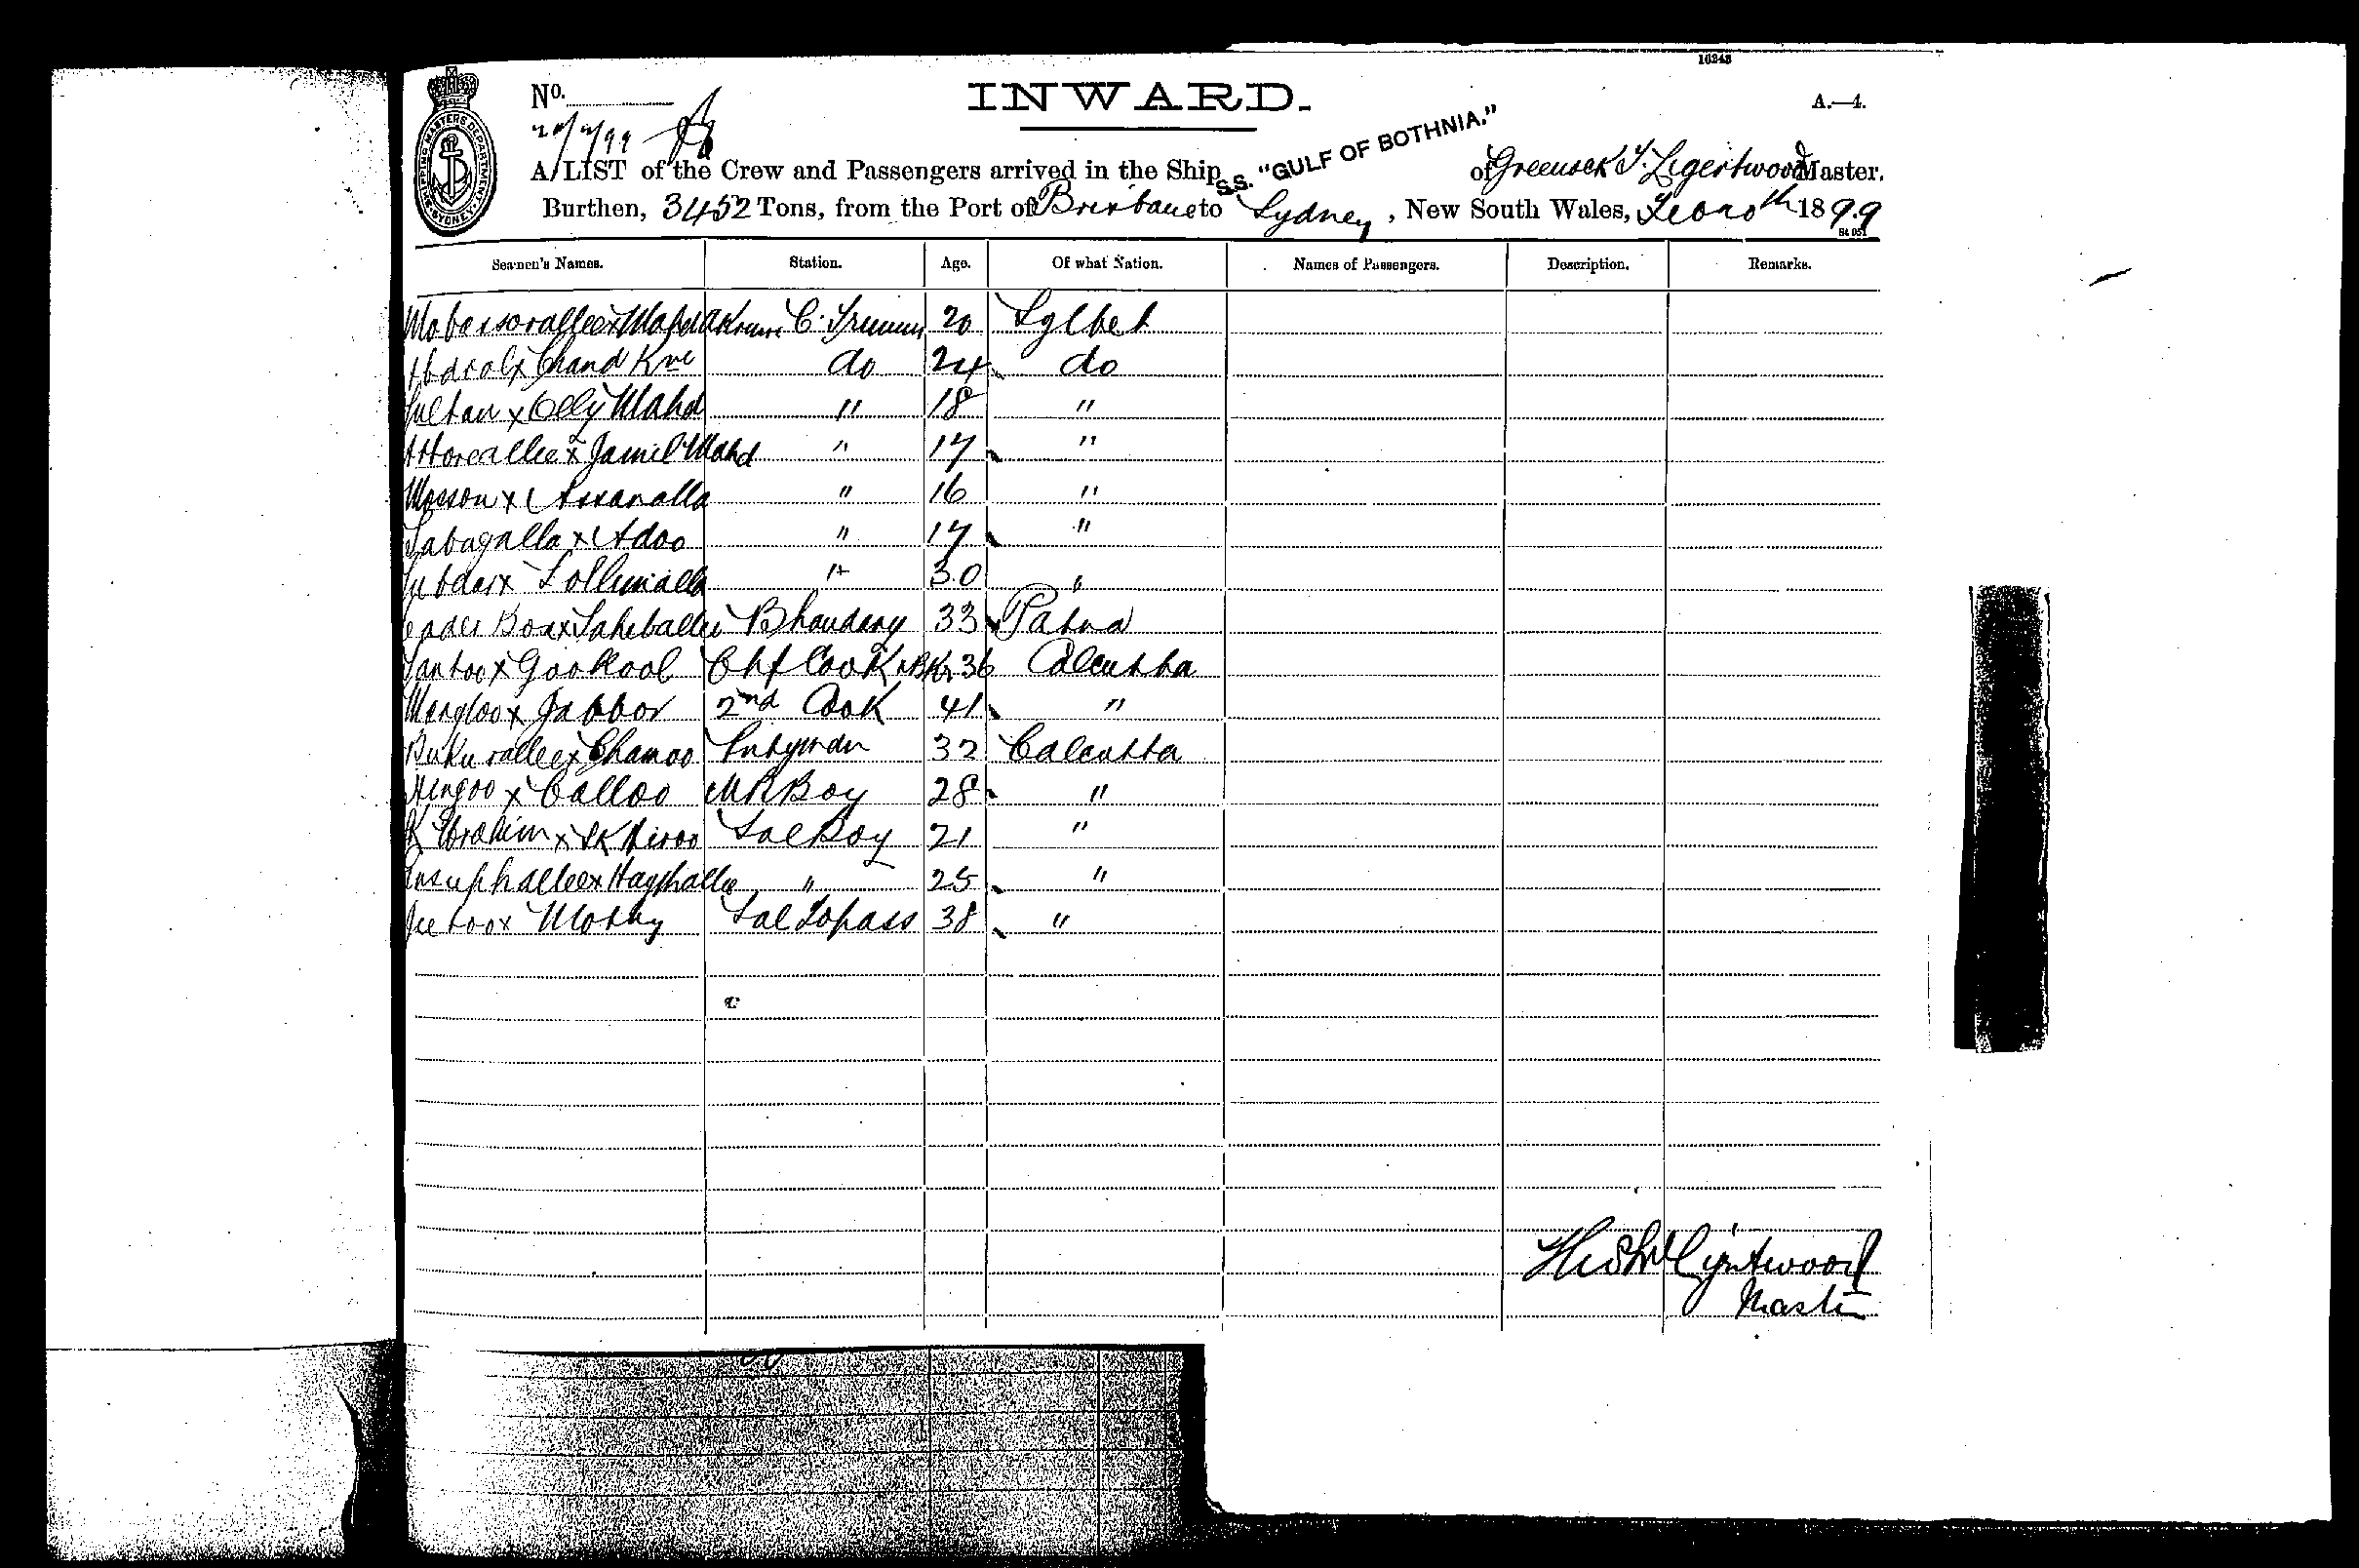 16248
No.
INWARD.
A.—4.
20/2/99
SHIPPING MASTERS DEPARTMENT SYDNEY
A LIST of the Crew and Passengers arrived in the Ship S.S. "GULF OF BOTHNIA." of Greenock T. Ligertwood Master.
Burthen, 3452 Tons, from the Port of Brisbane to Sydney, New South Wales, Feb 20th 1899
Seamen's Names. Station. Age. Of what Nation. Names of Passengers. Description. Remarks.
Mobarsorallee x Mahd Akram C. Trimmer 20 Sylhet
Abdool x Chand Kne do 24 do
Sultan x Olly Mahd " 18 "
Attorallee x Jamil Mahd " 17 "
Mosson x Assanalla " 16 "
Labagalla x Adoo " 17 "
Subdar x Sollimalla " 30 "
Box x Sahiballee Bhandary 33 Patna
x Gookool Chf Cook & Bkr 36 Calcutta
Mangloo x Jabbor 2nd Cook 41 "
x Chamoo Pntyman 32 Calcutta
x Calloo MR Boy 28 "
Ibrahim x SK Hiroo Sal Boy 21 "
x " 25 "
Jeetoo x Mothy Sal Topass 38 "
Ligertwood
Master